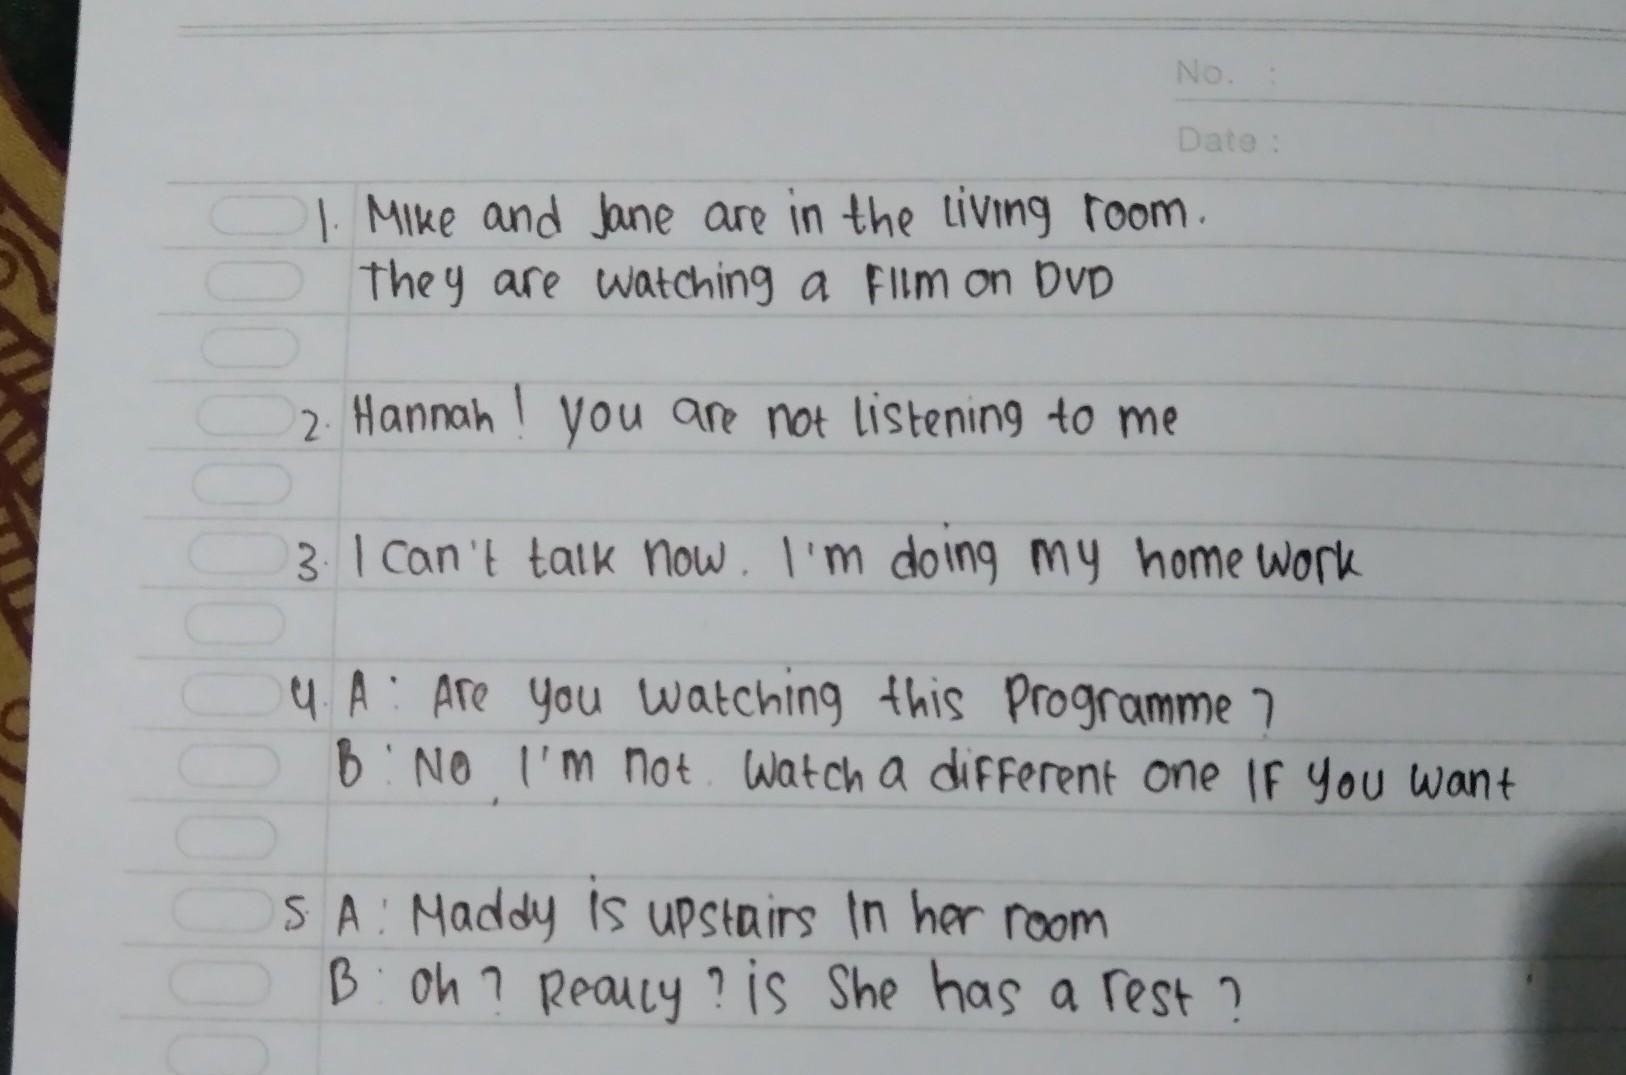 No. :
Date :
1. Mike and Jane are in the living room.
They are watching a Film on DVD
2. Hannah! you are not listening to me
3. I can't talk now. I'm doing my home work
4. A : Are you watching this programme?
B : No, I'm not. Watch a different one IF you want
5. A : Maddy is upstairs In her room
B : Oh? Really? is she has a rest?